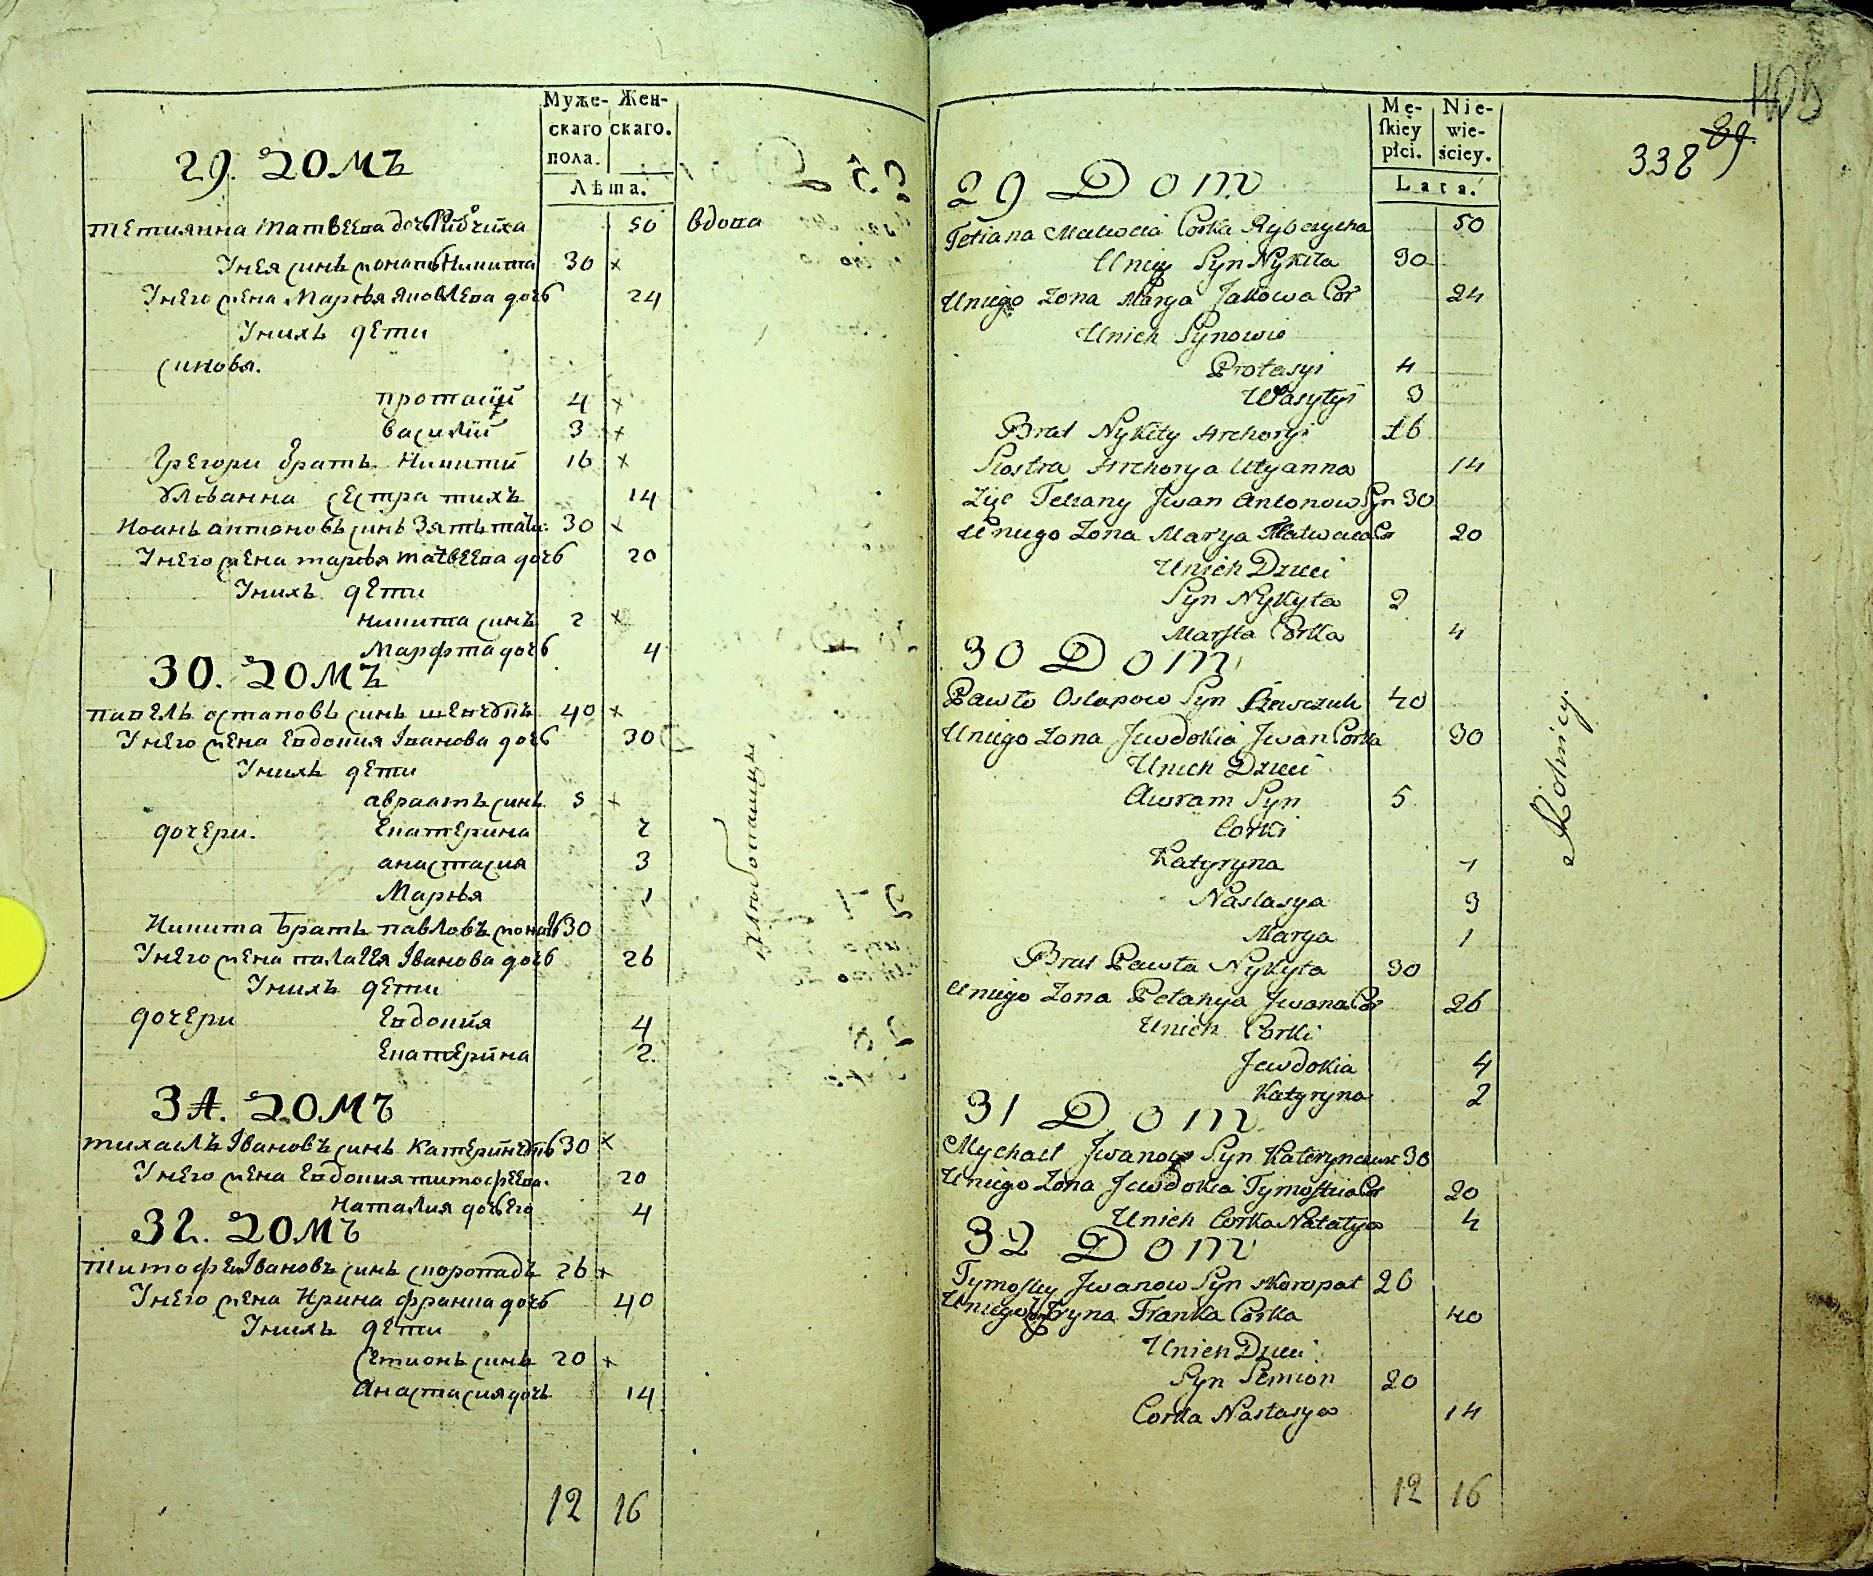 Муже- Жен-
скаго скаго.
пола.
Лѣта.
29. ДОМЪ
Тетиянна Матвеева дочь Рибчиха 50 вдова
У нея синъ Никита 30 х
У него жена Марья Яковлева дочь 24
У нихъ дети
синовя.
Протасий 4 х
Василий 3 х
Грегори братъ Никити 16 х
Улианна сестра тихъ 14
Иоанъ Антоновъ синъ зять 30 х
У него жена Марья Матвеева дочь 20
У нихъ дети
Никита синъ 2 х
Марфта дочь 4
30. ДОМЪ
Павель Остаповъ синъ Шевчукъ 40 х
У него жена Евдокия Іванова дочь 30
У нихъ дети
Авраамъ синъ 5 х
дочери. Екатерина 7
Анастасия 3
Марья 1
Никита братъ Павловъ 30
У него жена Палагея Іванова дочь 26
У нихъ дети
дочери Евдокия 4
Екатерина 2.
31. ДОМЪ
Михаилъ Івановъ синъ 30 х
У него жена Евдокия Тимофеева. 20
Наталия дочь его 4
32. ДОМЪ
Тимофей Івановъ синъ Скоропадъ 26 х
У него жена Ирина Франка дочь 40
У нихъ дети
Семионъ синъ 20 х
Анастасия дочь 14
12 16
хлебопашцы
НОБ
338 89.
Mę- Nie-
skiey wie-
płci. ściey.
Lata.
29 Dom
Tetiana Matweia Corka Rybczycha 50
U niey Syn Nykita 30
U niego Zona Marya Jakowa Cor 24
U nich Synowie
Protasyi 4
Wasylyi 3
Brat Nykity Hrehoryi 16
Siostra Hrehorya Ulyanna 14
Zyc Tetiany Jwan Antonow Syn 30
U niego Zona Marya Matweia Cor 20
U nich Dzieci
Syn Nykyta 2
Marfta Corka 4
30 Dom
Pawło Ostapow Syn Szewczuk 40
U niego Zona Jewdokia Jwan Corka 30
U nich Dzieci
Awram Syn 5
Corki
Katyryna 7
Nastasya 3
Marya 1
Brat Pawła Nykyta 30
U niego Zona Pelahya Jwana Cor 26
U nich Corki
Jewdokia 4
Katyryna 2
31 Dom
Mychael Jwanow Syn 30
U niego Zona Jewdokia Tymoftia Cor 20
U nich Corka Natalya 4
32 Dom
Tymofiy Jwanow Syn Skoropat 26
U niego Jryna Franka Corka 40
U nich Dzieci
Syn Semion 20
Corka Nastasya 14
12 16
Rolnicy.